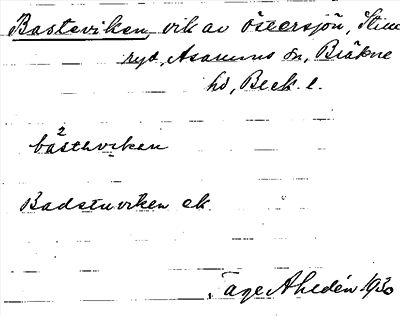 Basteviken, vik av Östersjön, Stille
ryd, Asarums sn, Bräkne
hd, Blek. l.
2
básthviken
Badstuviken ek.
Åge Ahldén 1930